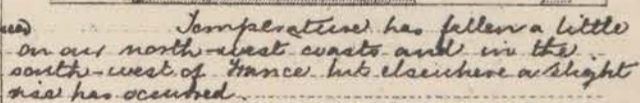 ued). Temperature has fallen a little
on our north-west coasts and in the
south-west of France but elsewhere a slight
rise has occurred.